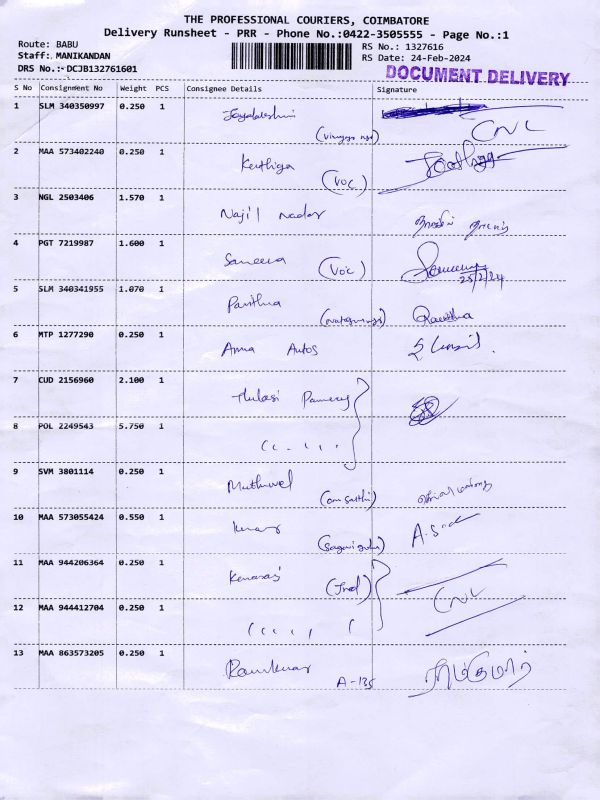 THE PROFESSIONAL COURIERS, COIMBATORE
Delivery Runsheet - PRR - Phone No.:0422-3505555 - Page No.:1
Route: BABU
Staff: MANIKANDAN
DRS No.:-DCJB132761601
RS No.: 1327616
RS Date: 24-Feb-2024
DOCUMENT DELIVERY
S No Consignment No Weight PCS Consignee Details Signature
1 SLM 340350997 0.250 1
CNL
2 MAA 573402240 0.250 1 Keerthiga
(VOC)
3 NGL 2503406 1.570 1 Najil Nadar
4 PGT 7219987 1.600 1 Sameera (VOC)
25/2/24
5 SLM 340341955 1.070 1 Pavithra
6 MTP 1277290 0.250 1 Anna Autos
7 CUD 2156960 2.100 1 Thulasi
8 POL 2249543 5.750 1
9 SVM 3801114 0.250 1 Muthuvel
(om sakthi)
10 MAA 573055424 0.550 1 Kumar
11 MAA 944206364 0.250 1
CNL
12 MAA 944412704 0.250 1
13 MAA 863573205 0.250 1 Ramkumar
A-135 ராம்குமார்